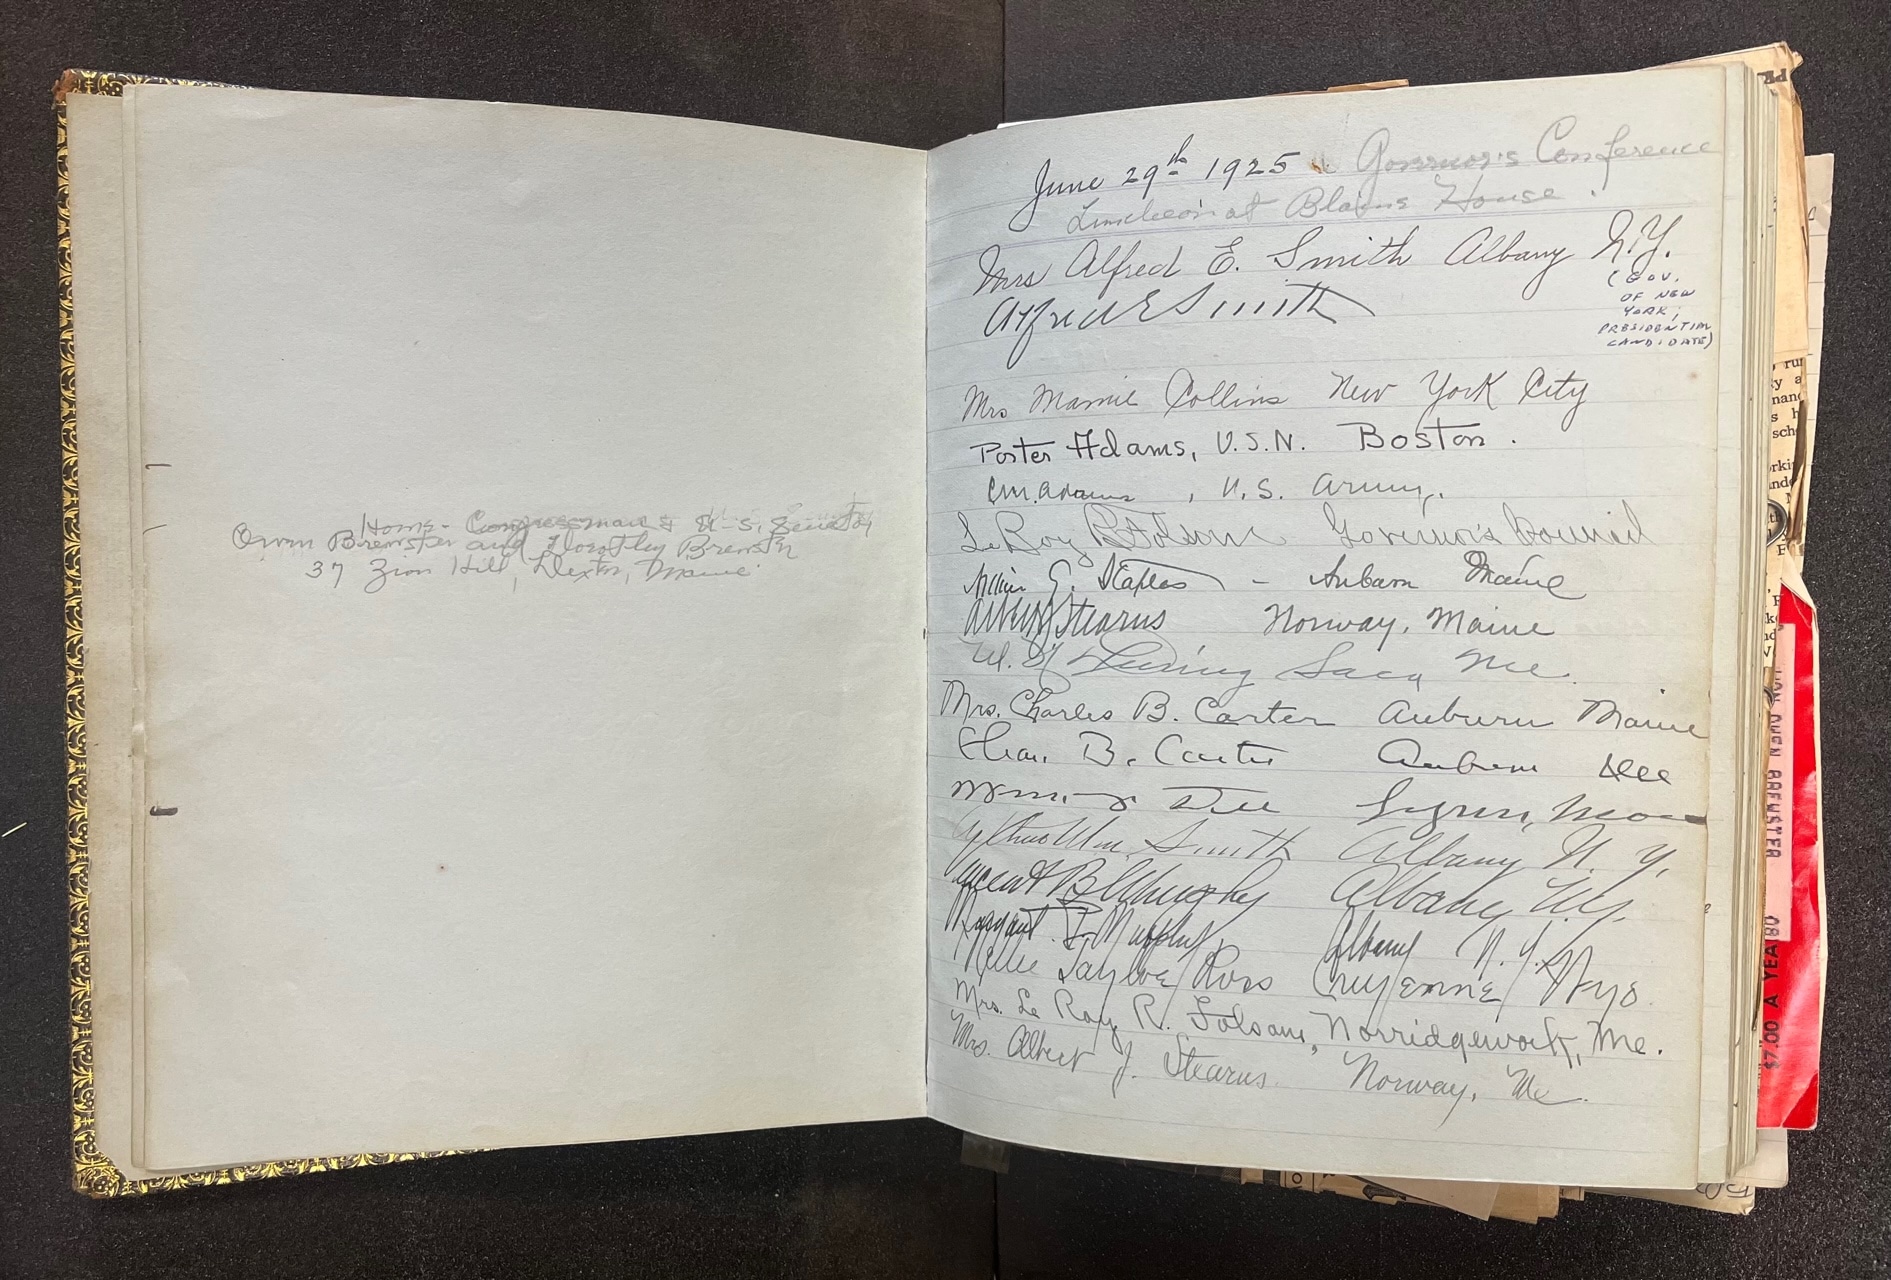 Home - Congressman & U-S. Senator
Owen Brewster and Dorothy Brewster
37 Zion Hill, Dexter, Maine
June 29th 1925 Governor's Conference
Luncheon at Blaine House.
Mrs Alfred E. Smith Albany N.Y.
Alfred E Smith
(GOV.
OF NEW
YORK,
PRESIDENTIAL
CANDIDATE)
Mrs Mamie Collins New York City
Porter Adams, U.S.N. Boston.
C.M. Adams, U.S. Army.
LeRoy R Folsom Governor's Council
G. Staples - Auburn Maine
Albert J Stearns Norway, Maine
Deering Saco Me.
Mrs. Charles B. Carter Auburn Maine
Chas. B. Carter Auburn Me
Arthur Wm. Smith Albany N.Y.
Vincent B Murphy Albany N.Y.
Margaret Murphy Albany N.Y.
Nellie Tayloe Ross Cheyenne Wyo
Mrs. Le Roy R. Folsom, Norridgewock, Me.
Mrs. Albert J. Stearns. Norway, Me.
HON OWEN BREWSTER
$7.00 A YEAR